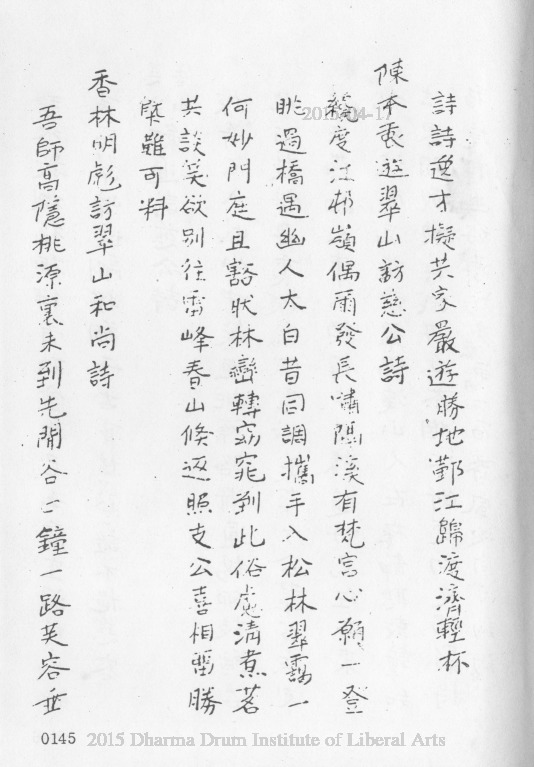 詩詩逸才擬共家嚴遊勝地鄞江歸渡濟輕杯
陳本衷遊翠山訪慈公詩
纔度江邨嶺偶爾發長嘯隔溪有梵宮心願一登
眺過橋遇幽人太白昔同調攜手入松林翠靄一
何妙門庭且豁狀林巒轉窈窕到此俗慮清煮茗
共談笑欲別往雷峰春山倏返照支公喜相留勝
槩難可料
香林明彪訪翠山和尚詩
吾師高隱桃源裏未到先聞谷口鐘一路芙容垂
2015-04-17
0145 2015 Dharma Drum Institute of Liberal Arts